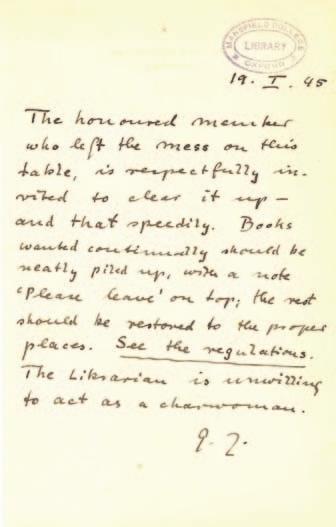 MANSFIELD COLLEGE
LIBRARY
OXFORD
19. I. 45
The honoured member
who left the mess on this
table, is respectfully in-
vited to clear it up –
and that speedily. Books
wanted continually should be
neatly piled up, with a note
'Please leave' on top; the rest
should be restored to the proper
places. See the regulations.
The Librarian is unwilling
to act as a charwoman.